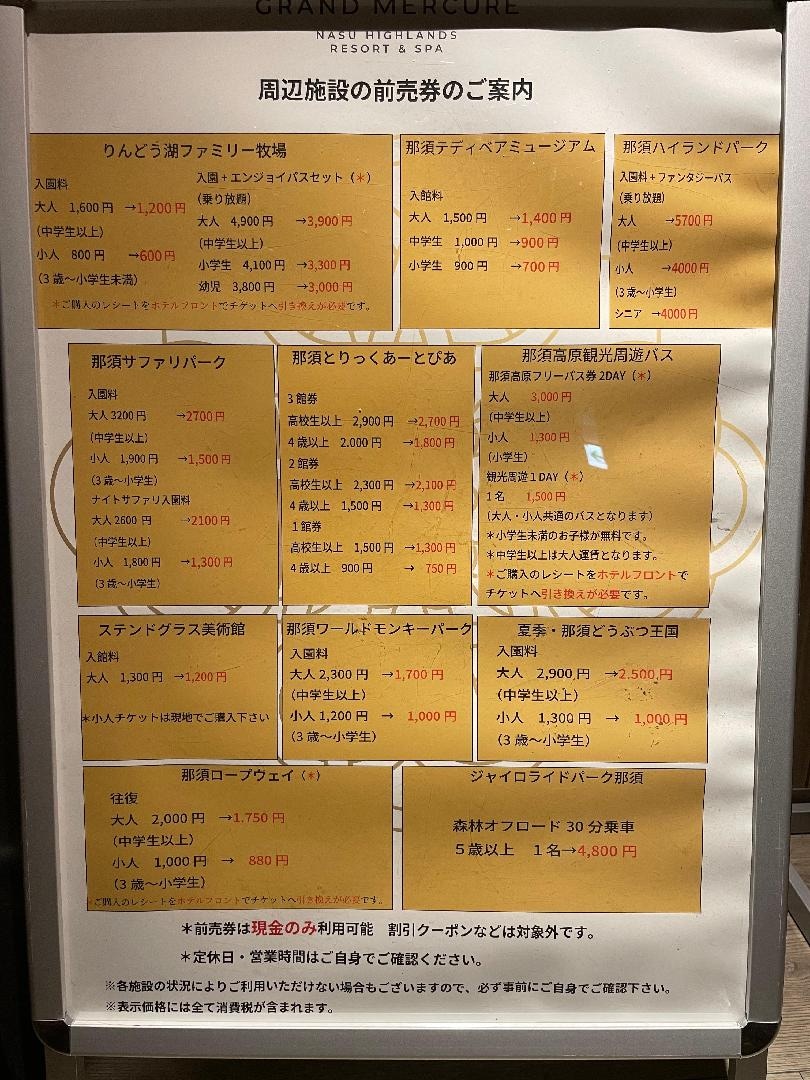 GRAND MERCURE
NASU HIGHLANDS
RESORT & SPA
周辺施設の前売券のご案内
りんどう湖ファミリー牧場
入園料
大人 1,600円 →1,200円
(中学生以上)
小人 800円 →600円
(3歳～小学生未満)
入園+エンジョイパスセット(*)
(乗り放題)
大人 4,900円 →3,900円
(中学生以上)
小学生 4,100円 →3,300円
幼児 3,800円 →3,000円
*ご購入のレシートをホテルフロントでチケットへ引き換えが必要です。
那須テディベアミュージアム
入館料
大人 1,500円 →1,400円
中学生 1,000円 →900円
小学生 900円 →700円
那須ハイランドパーク
入園料+ファンタジーパス
(乗り放題)
大人 →5700円
(中学生以上)
小人 →4000円
(3歳～小学生)
シニア →4000円
那須サファリパーク
入園料
大人3200円 →2700円
(中学生以上)
小人 1,900円 →1,500円
(3歳～小学生)
ナイトサファリ入園料
大人2600円 →2100円
(中学生以上)
小人 1,800円 →1,300円
(3歳～小学生)
那須とりっくあーとぴあ
3館券
高校生以上 2,900円 →2,700円
4歳以上 2.000円 →1,800円
2館券
高校生以上 2,300円 →2,100円
4歳以上 1,500円 →1,300円
1館券
高校生以上 1,500円 →1,300円
4歳以上 900円 → 750円
那須高原観光周遊バス
那須高原フリーパス券2DAY(*)
大人 3,000円
(中学生以上)
小人 1,300円
(小学生)
観光周遊1DAY(*)
1名 1,500円
(大人・小人共通のパスとなります)
*小学生未満のお子様が無料です。
*中学生以上は大人運賃となります。
*ご購入のレシートをホテルフロントで
チケットへ引き換えが必要です。
ステンドグラス美術館
入館料
大人 1,300円 →1,200円
*小人チケットは現地でご購入下さい
那須ワールドモンキーパーク
入園料
大人2,300円 →1,700円
(中学生以上)
小人1,200円 → 1,000円
(3歳～小学生)
夏季・那須どうぶつ王国
入園料
大人 2,900円 →2.500円
(中学生以上)
小人 1,300円 → 1,000円
(3歳～小学生)
那須ロープウェイ(*)
往復
大人 2,000円 →1.750円
(中学生以上)
小人 1,000円 → 880円
(3歳～小学生)
*ご購入のレシートをホテルフロントでチケットへ引き換えが必要です。
ジャイロライドパーク那須
森林オフロード30分乗車
5歳以上 1名→4,800円
*前売券は現金のみ利用可能 割引クーポンなどは対象外です。
*定休日・営業時間はご自身でご確認ください。
※各施設の状況によりご利用いただけない場合もございますので、必ず事前にご自身でご確認下さい。
※表示価格には全て消費税が含まれます。